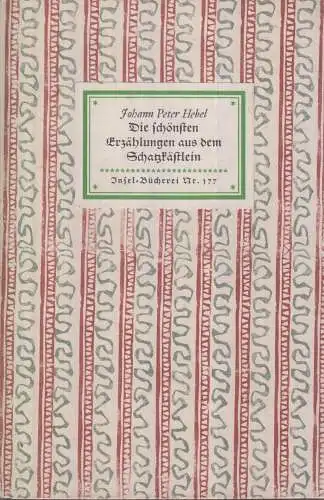 Johann Peter Hebel
Die schönsten
Erzählungen aus dem
Schatzkästlein
Insel-Bücherei Nr. 177